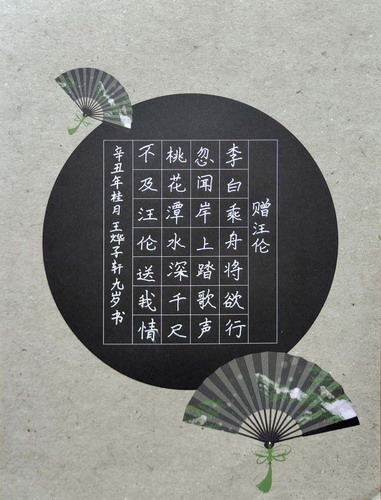 赠汪伦
李白乘舟将欲行
忽闻岸上踏歌声
桃花潭水深千尺
不及汪伦送我情
辛丑年桂月王烨子轩九岁书